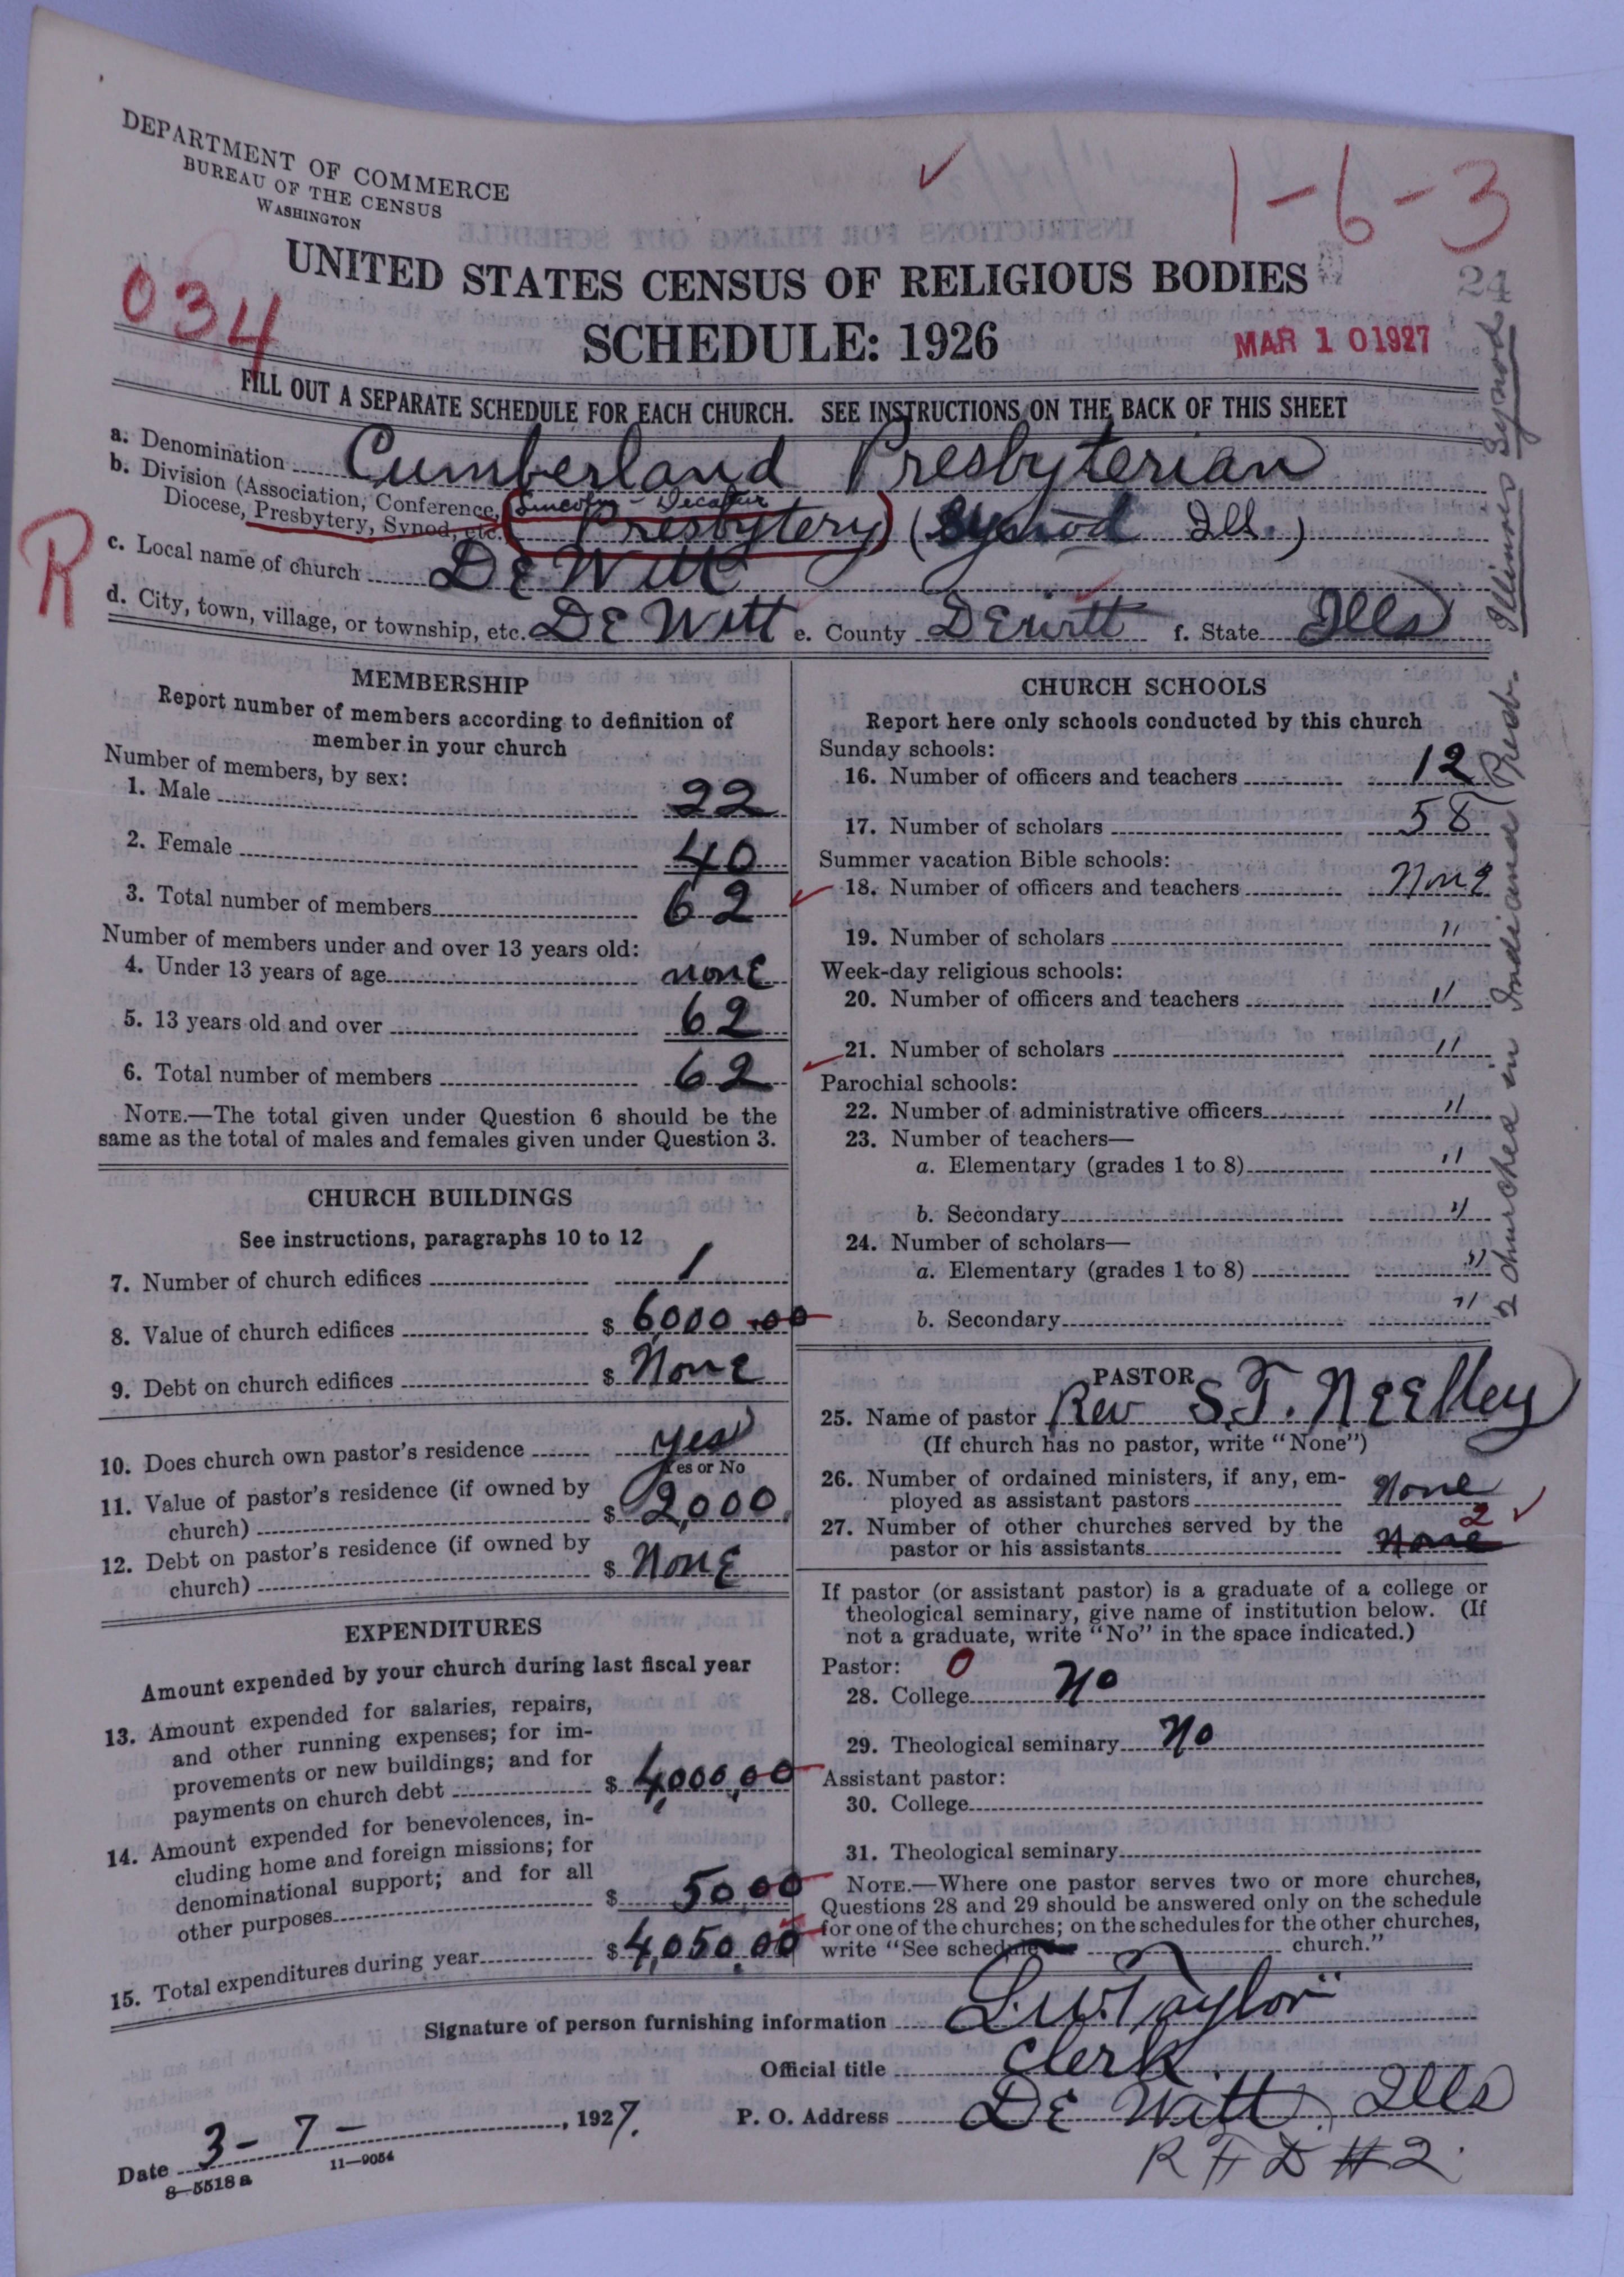 DEPARTMENT OF COMMERCE
BUREAU OF THE CENSUS
WASHINGTON
1-6-3
24
UNITED STATES CENSUS OF RELIGIOUS BODIES
034
SCHEDULE: 1926
MAR 10 1927
FILL OUT A SEPARATE SCHEDULE FOR EACH CHURCH. SEE INSTRUCTIONS ON THE BACK OF THIS SHEET
a. Denomination Cumberland Presbyterian
b. Division (Association, Conference, Lincoln - Decatur
Diocese, Presbytery, Synod, etc. Presbytery) (Synod Ill.)
R
c. Local name of church DE Witt
d. City, town, village, or township, etc. DE Witt e. County DEwitt f. State Ills
2 churches in Indiana Presb. Illinois Synod
MEMBERSHIP
Report number of members according to definition of
member in your church
Number of members, by sex:
1. Male 22
2. Female 40
3. Total number of members 62
Number of members under and over 13 years old:
4. Under 13 years of age nonE
5. 13 years old and over 62
6. Total number of members 62
NOTE.—The total given under Question 6 should be the
same as the total of males and females given under Question 3.
CHURCH BUILDINGS
See instructions, paragraphs 10 to 12
7. Number of church edifices 1
8. Value of church edifices $ 6000.00
9. Debt on church edifices $ NonE
10. Does church own pastor's residence yes
Yes or No
11. Value of pastor's residence (if owned by
church) $ 2,000.
12. Debt on pastor's residence (if owned by
church) $ NonE
EXPENDITURES
Amount expended by your church during last fiscal year
13. Amount expended for salaries, repairs,
and other running expenses; for im-
provements or new buildings; and for
payments on church debt $ 4,000.00
14. Amount expended for benevolences, in-
cluding home and foreign missions; for
denominational support; and for all
other purposes $ 50.00
15. Total expenditures during year $ 4,050.00
CHURCH SCHOOLS
Report here only schools conducted by this church
Sunday schools:
16. Number of officers and teachers 12
17. Number of scholars 58
Summer vacation Bible schools:
18. Number of officers and teachers None
19. Number of scholars "
Week-day religious schools:
20. Number of officers and teachers "
21. Number of scholars "
Parochial schools:
22. Number of administrative officers "
23. Number of teachers—
a. Elementary (grades 1 to 8) "
b. Secondary "
24. Number of scholars—
a. Elementary (grades 1 to 8) "
b. Secondary "
PASTOR
25. Name of pastor Rev S.T. NEElley
(If church has no pastor, write "None")
26. Number of ordained ministers, if any, em-
ployed as assistant pastors None
27. Number of other churches served by the 2
pastor or his assistants None
If pastor (or assistant pastor) is a graduate of a college or
theological seminary, give name of institution below. (If
not a graduate, write "No" in the space indicated.)
Pastor: 0
28. College No
29. Theological seminary No
Assistant pastor:
30. College
31. Theological seminary
NOTE.—Where one pastor serves two or more churches,
Questions 28 and 29 should be answered only on the schedule
for one of the churches; on the schedules for the other churches,
write "See schedule church."
Signature of person furnishing information L.W. Taylor
Official title Clerk
P. O. Address DE Witt, Ills
R F D #2.
Date 3-7-, 1927.
8—5518 a 11—9054